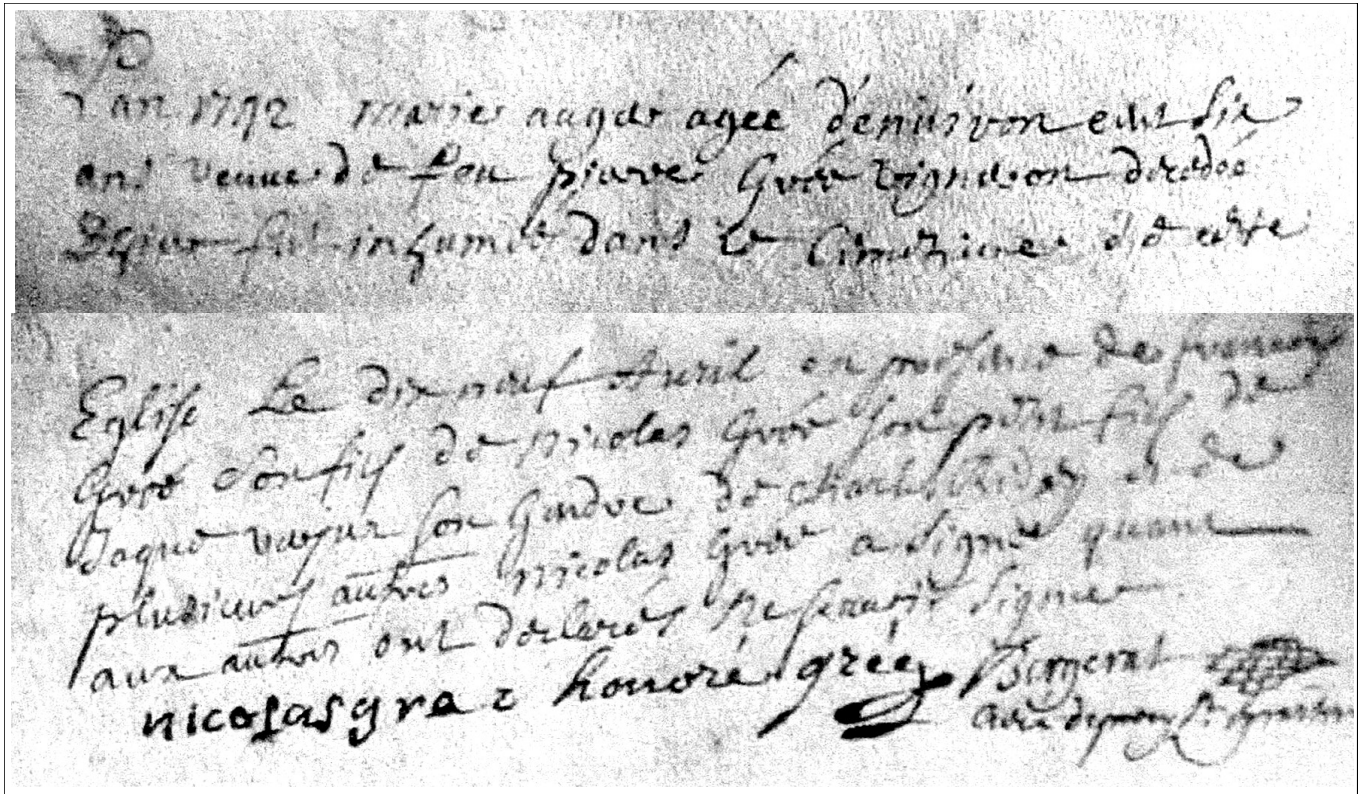 L'an 1792 marie auger agée d'environ cent six
ans veuve de feu pierre Gréé vigneron décédée
fut inhumée dans le Cimetiere de cette
Eglise Le dix neuf Avril en presence de francois
Gréé son fils de nicolas Gréé son petit fils de
Jaque son Gendre de charle et de
plusieurs autres nicolas Gréé a signé quant
aux autres ont declarés ne scavoir signer
nicolas gree honoré gréé Bergerat